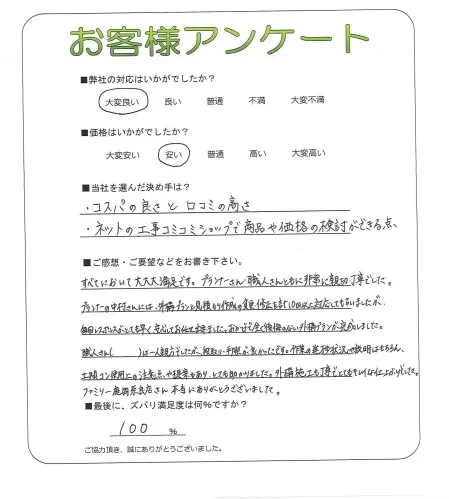 お客様アンケート
■弊社の対応はいかがでしたか？
大変良い 良い 普通 不満 大変不満
■価格はいかがでしたか？
大変安い 安い 普通 高い 大変高い
■当社を選んだ決め手は？
・コスパの良さと口コミの高さ
・ネットの工事コミコミショップで商品や価格の検討ができる点、
■ご感想・ご要望などをお書き下さい。
すべてにおいて大大大満足です。プランナーさん・職人さんともに非常に親切丁寧でした。
プランナーの中村さんには、外構プランと見積もり作成の変更・修正を計10回以上対応してもらいましたが、
毎回レスポンスがとても早く安心してお任せ出来ました。おかげで全く後悔のない外構プランが完成しました。
職人さん( )は一人親方でしたが、段取り・手際が良かったです。作業の進捗状況や説明はもちろん、
土間コン使用上の注意点や提案もあり、とても助かりました。外構施工も丁寧でとてもキレイな仕上がりでした。
ファミリー庭岡奈良店さん本当にありがとうございました。
■最後に、ズバリ満足度は何％ですか？
100 %
ご協力頂き、誠にありがとうございました。